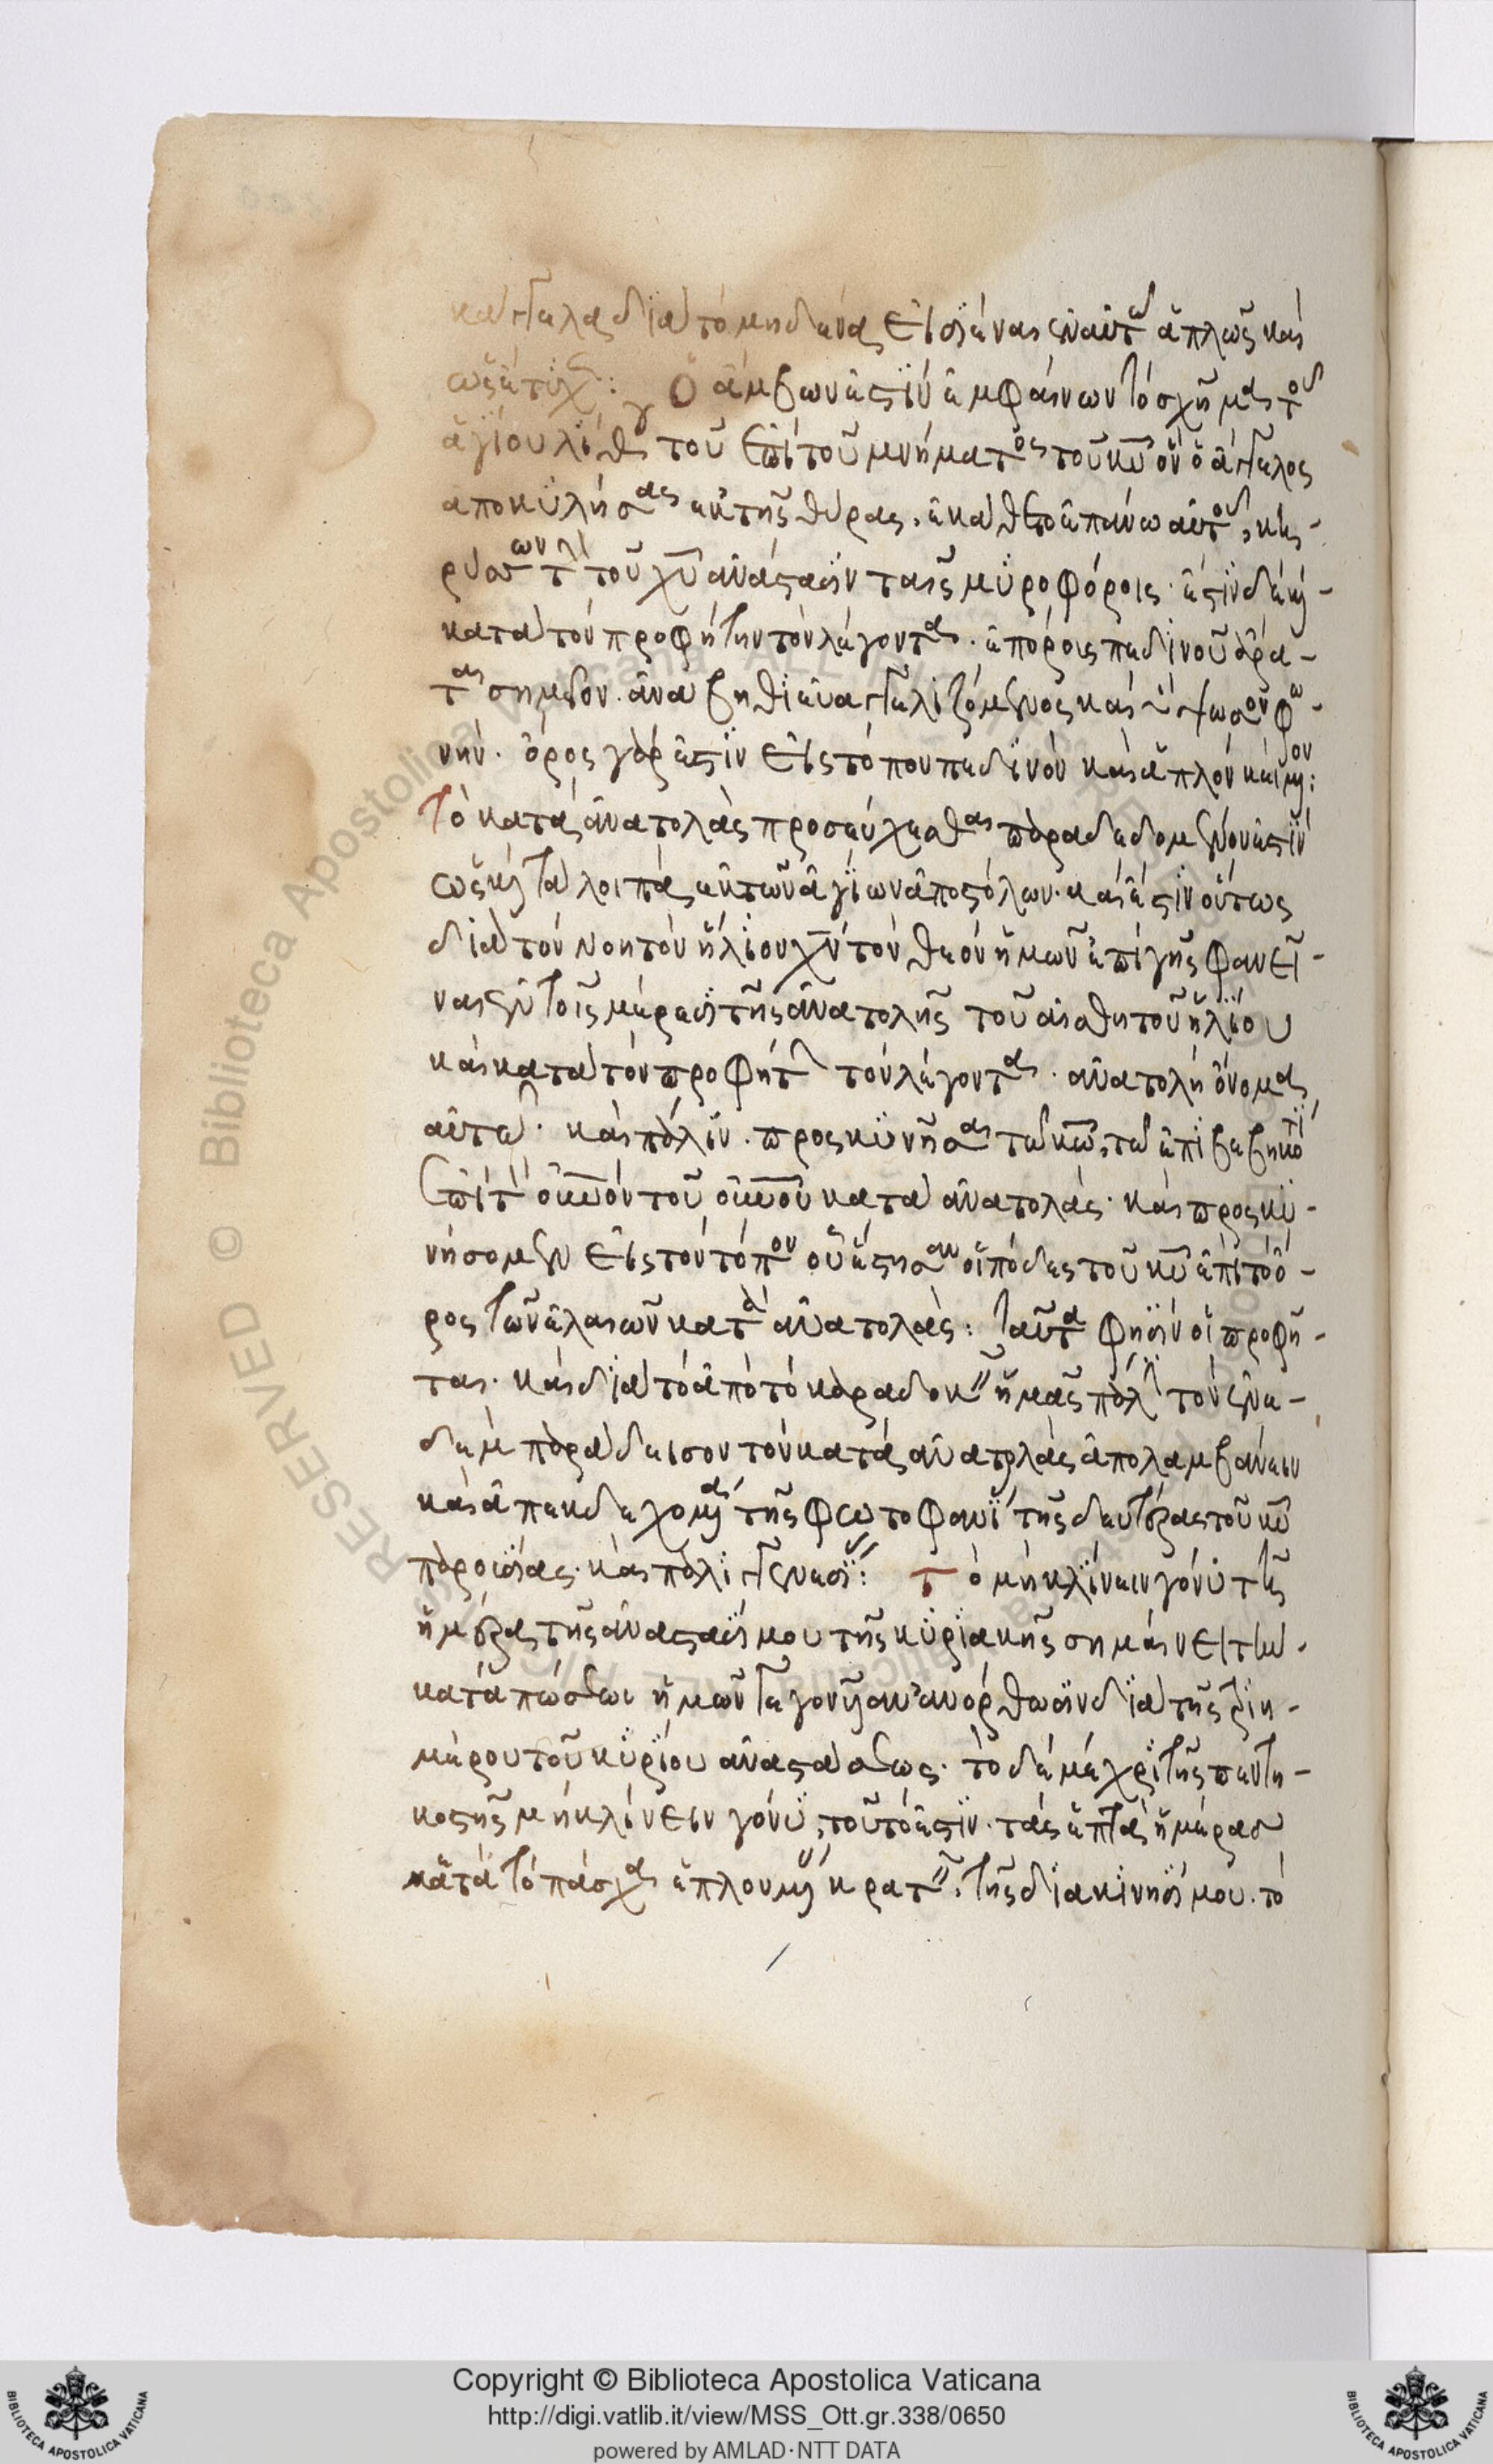 κάγκελα, διὰ τὸ μηδένα εἰσιέναι ἐν αὐτῶ ἁπλῶς καὶ
ὡς ἔτυχε: Ὁ ἄμβων ἐστὶν ἐμφαίνων τὸ σχῆμα τοῦ
ἁγίου λίθου τοῦ ἐπὶ τοῦ μνήματος τοῦ κυ ὃν ὁ ἄγγελος
αποκυλήσας ἐκ τῆς θύρας, ἐκάθετο ἐπάνω αὐτοῦ, κη-
ρύσσων τὴν τοῦ χυ ἀνάστασιν ταῖς μυροφόροις· ἐστὶν δὲ καὶ
κατὰ τὸν προφήτην τὸν λέγοντα· ἐπ' ὄροις πεδινοῦ ἄρα-
ται σημεῖον· ἀνάβηθι εὐαγγελιζόμενος καὶ ὕψωσον φω-
νήν· ὄρος γάρ ἐστὶν εἰς τόπον πεδινὸν καὶ ἁπλὸν κείμενον:
Τὸ κατὰ ἀνατολὰς προσεύχεσθαι παραδεδομένον ἐστὶν
ὡς καὶ τὰ λοιπὰ ἐκ τῶν ἁγίων ἀποστόλων· καὶ ἐστὶν οὕτως
διὰ τὸν νοητὸν ἥλιον χν τὸν θεὸν ἡμῶν ἐπὶ γῆς φανεῖ-
ναι ἐν τοῖς μέρεσι τῆς ἀνατολῆς τοῦ αἰσθητοῦ ἡλίου
καὶ κατὰ τὸν προφήτην τὸν λέγοντα· ἀνατολὴ ὄνομα
αὐτῶ· καὶ πάλιν· προσκυνῆσαι τῶ κω, τῶ ἐπιβεβηκότι
ἐπὶ τὸν οὐνον τοῦ οὐνου κατὰ ἀνατολάς· καὶ προσκυ-
νήσομεν εἰς τὸν τόπον οὗ ἔστησαν οἱ πόδες τοῦ κυ ἐπὶ τὸ ὄ-
ρος τῶν ἐλαιῶν κατὰ ἀνατολάς: ταῦτα φησὶν οἱ προφῆ-
ται· καὶ διὰ τὸ ἀπὸ τὸ καραδοκεῖν ἡμᾶς πάλιν τὸν ἐν ἐ-
δὲμ παράδεισον τὸν κατὰ ἀνατολὰς ἀπολαμβάνειν
καὶ ἀπεκδεχομένας τῆς φωτοφανίας τῆς δευτέρας τοῦ κυ
παρουσίας· καὶ πάλι γενεσίας: Τὸ μὴ κλίνειν γόνυ τῆς
ἡμέρας τῆς ἀναστασίμου τῆς κυριακῆς σημαίνει τὴν
κατάπτώσεως ἡμῶν γεγονῆσαν ἀνόρθωσιν διὰ τῆς τριη-
μέρου τοῦ κυρίου ἀναστάσεως· τὸ δὲ μέχρι τῆς πεντη-
κοστῆς μὴ κλίνειν γόνυ, τοῦτό ἐστιν· τὰς ἑπτὰ ἡμέρας
κατὰ τὸ πάσχα κρατεῖν, τῆς διακινησίμου. τὸ